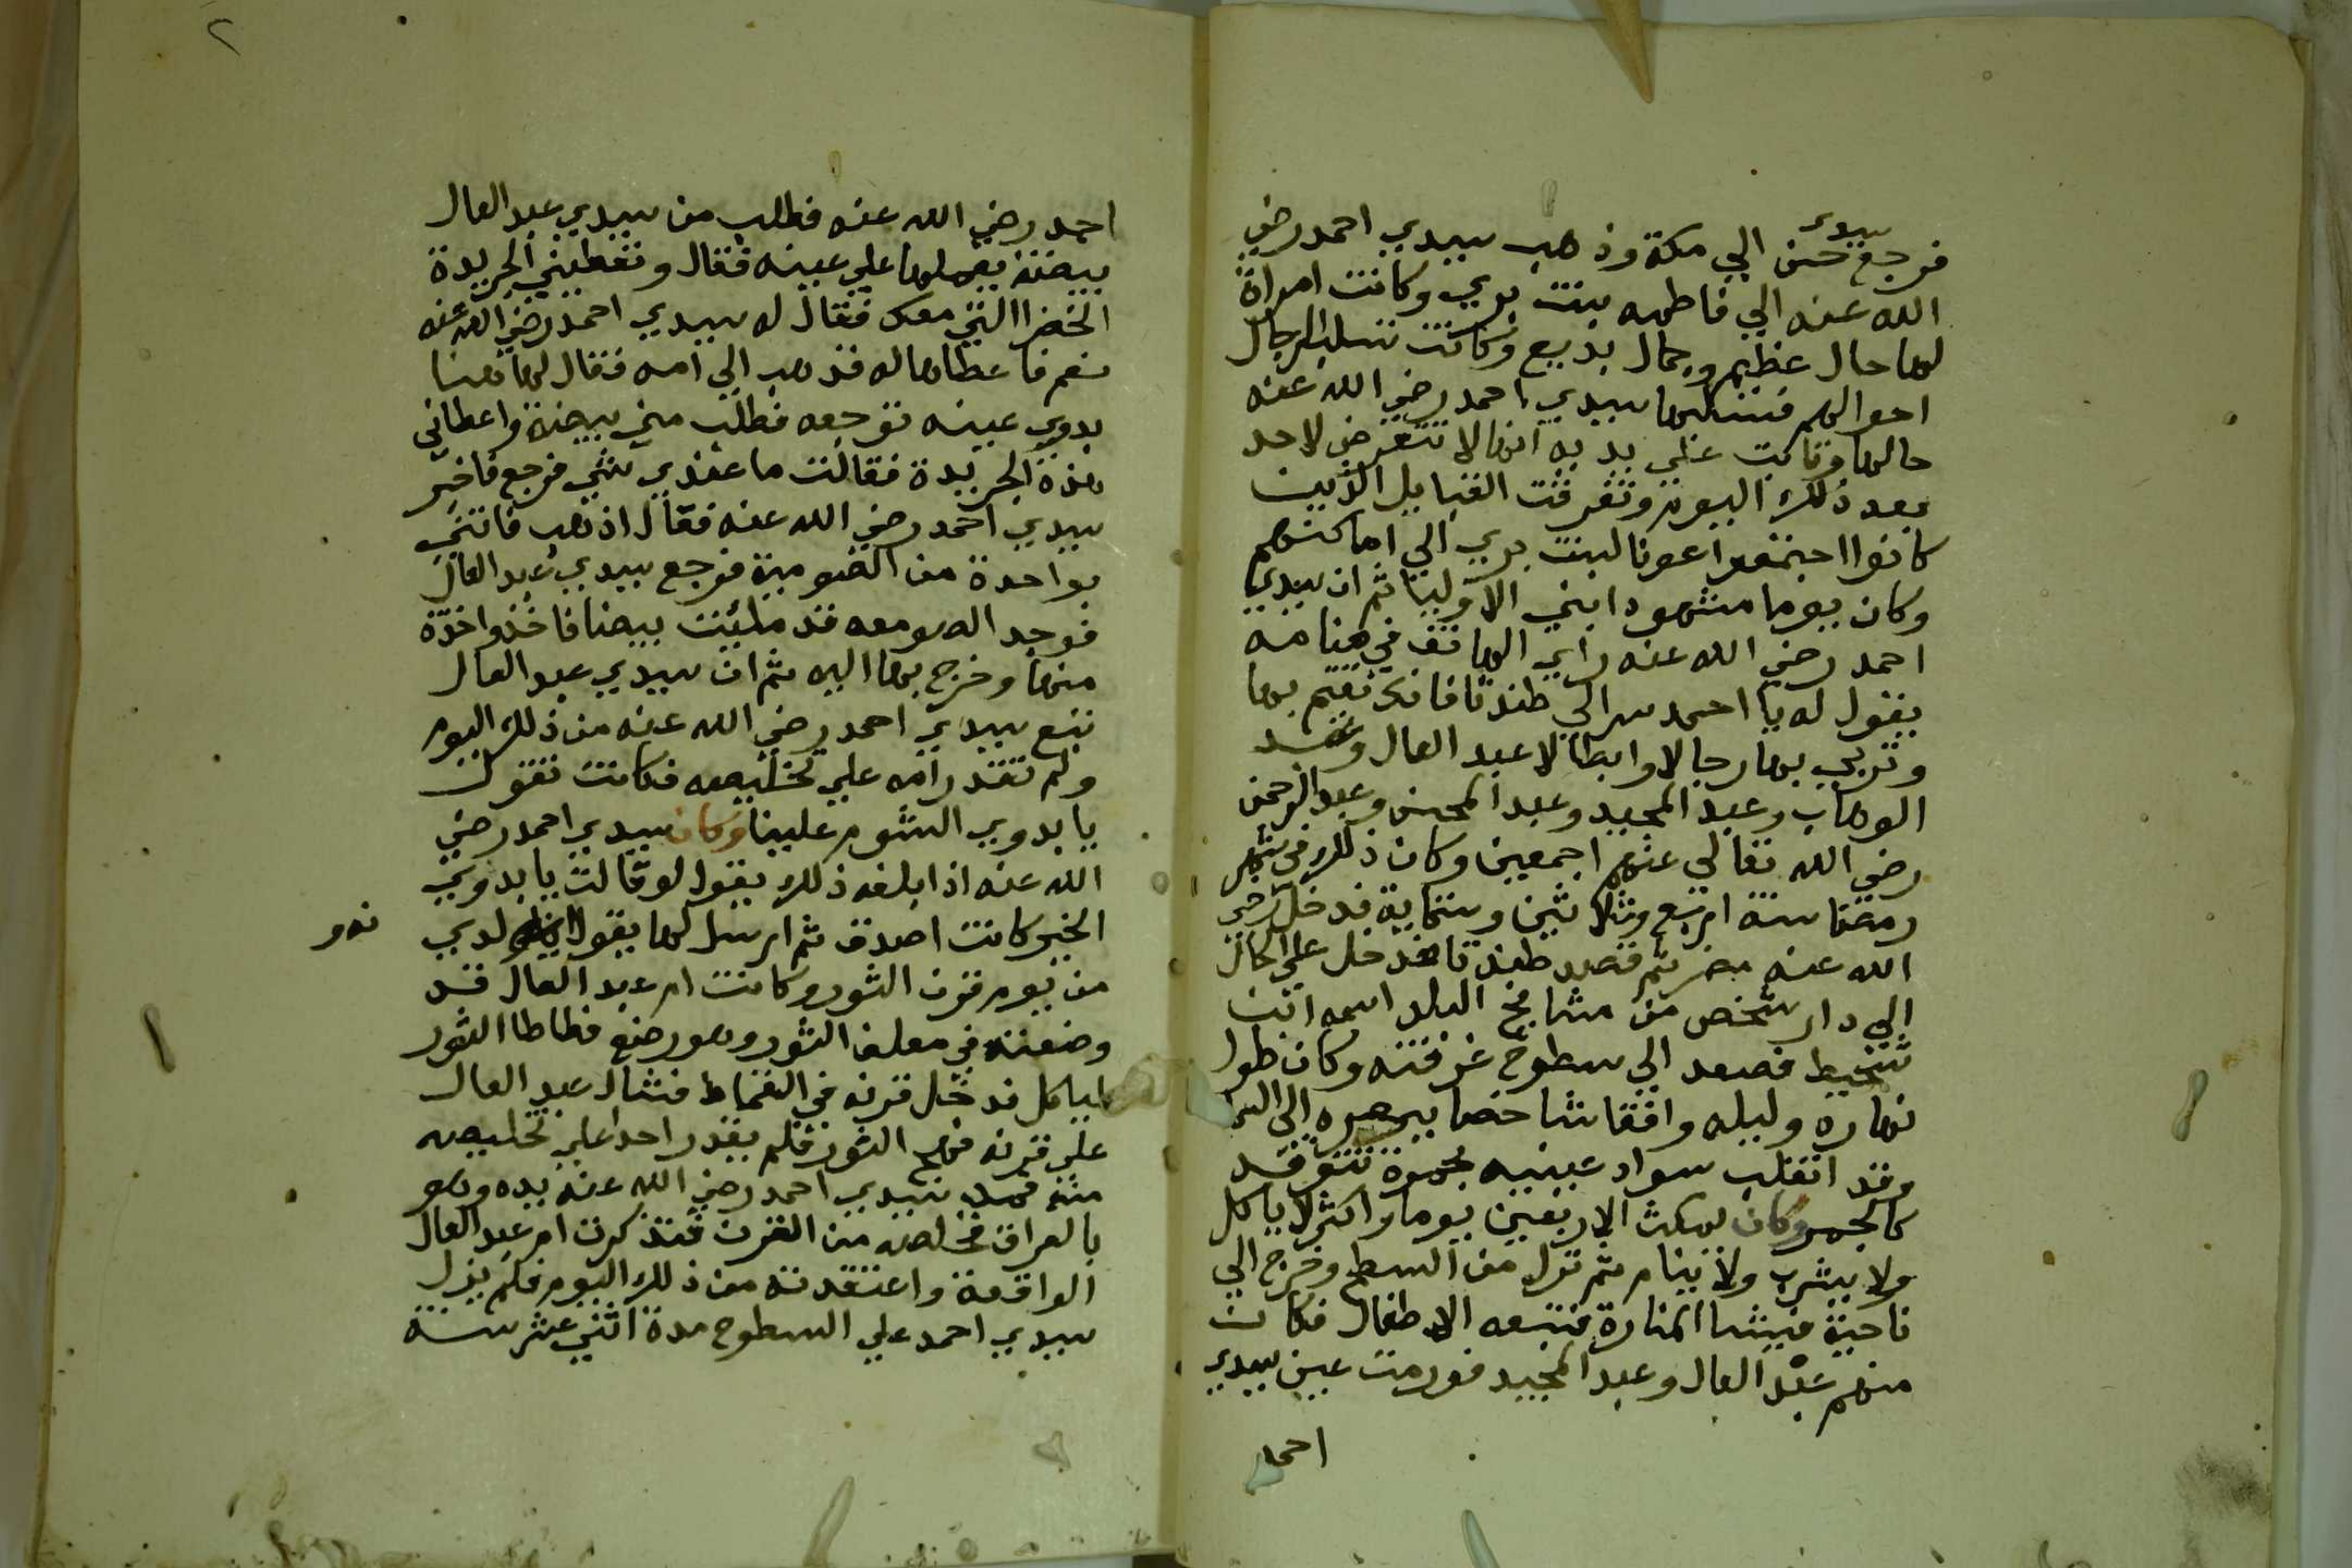 سيدي
فرجع حسن الي مكة وذهب سيدي احمد رضي
الله عنه الي فاطمه بنت بري وكانت امراة
لها حال عظيم وجمال بديع وكانت تسلب الرجال
احوالهم فسلبها سيدي احمد رضي الله عنه
حالها وتابت علي يديه انها لا تتعرض لاحد
بعد ذلك اليوم وتفرقت القبايل الذين
كانوا اجتمعوا عونا لبنت بري الي اماكنهم
وكان يوما مشهودا بين الاوليا ثم ان سيدي
احمد رضي الله عنه راي الهاتف في منامه
يقول له يا احمد سر الي طندتا فانك تقيم بها
وتربي بها رجالا وابطالا عبد العال وعبد
الوهاب وعبد المجيد وعبد المحسن وعبد الرحمن
رضي الله تعالي عنهم اجمعين وكان ذلك في شهر
رمضان سنة اربع وثلاثين وستماية فدخل رضي
الله عنه مصر ثم قصد طندتا فدخل علي الحال
الي دار شخص من مشايخ البلد اسمه ابن
شحيط فصعد الي سطوح غرفته وكان طول
نهاره وليله واقفا شاخصا ببصره الي السما
وقد انقلب سواد عينيه بحمرة تتوقد
كالجمر وكان يمكث الاربعين يوما واكثر لا ياكل
ولا يشرب ولا ينام ثم نزل من السطح وخرج الي
ناحية فيشا المنارة فتبعه الاطفال فكان
منهم عبد العال وعبد المجيد فورمت عين سيدي
احمد
٢
احمد رضي الله عنه فطلب من سيدي عبد العال
بيضة يعملها علي عينه فقال وتعطيني الجريدة
الخضرا التي معك فقال له سيدي احمد رضي الله عنه
نعم فاعطاها له فذهب الي امه فقال لها هنا
بدوي عينه توجعه فطلب مني بيضة واعطاني
هذه الجريدة فقالت ما عندي شي فرجع فاخبر
سيدي احمد رضي الله عنه فقال اذهب فاتني
بواحدة من الصومعة فرجع سيدي عبد العال
فوجد الصومعه قد ملئت بيضا فاخذ واحدة
منها وخرج بها اليه ثم ان سيدي عبد العال
تبع سيدي احمد رضي الله عنه من ذلك اليوم
ولم تقدر امه علي تخليصه فكانت تقول
يا بدوي الشوم علينا وكان سيدي احمد رضي
الله عنه اذا بلغه ذلك يقول لو قالت يا بدوي
الخير كانت اصدق ثم ارسل لها يقول لها ولدي
من يوم قرن الثور وكانت ام عبد العال قد
وضعته في معلف الثور وهو رضيع فطاطا الثور
لياكل فدخل قرنه في القماط فشال عبد العال
علي قرنه فهج الثور فلم يقدر احد علي تخليصه
منه فمد سيدي احمد رضي الله عنه يده وهو
بالعراق فخلصه من القرن فتذكرت ام عبد العال
الواقعة واعتقدته من ذلك اليوم فلم يزل
سيدي احمد علي السطوح مدة اثني عشر سنة